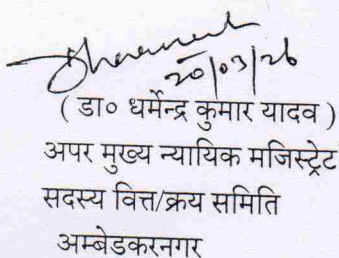 20/03/26
( डा० धर्मेन्द्र कुमार यादव )
अपर मुख्य न्यायिक मजिस्ट्रेट
सदस्य वित्त/क्रय समिति
अम्बेडकरनगर